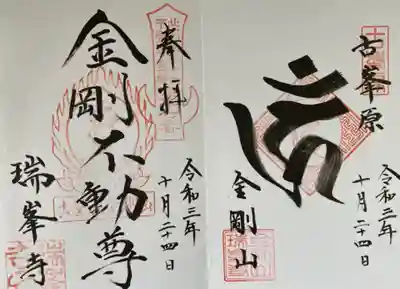 奉拝
金剛不動尊
令和三年
十月二十四日
瑞峯寺
古峯原
金剛山
令和三年
十月二十四日